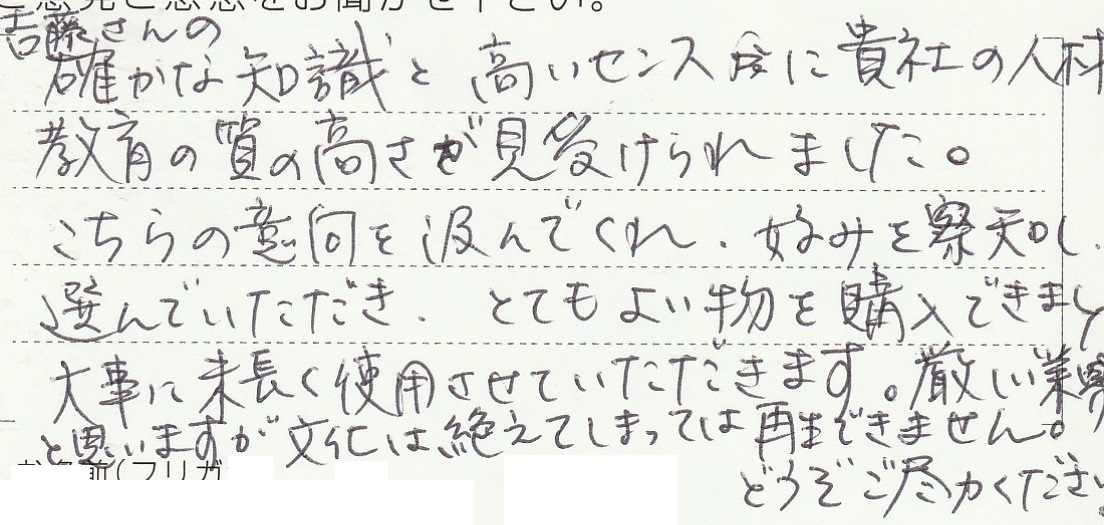 ご意見ご感想をお聞かせ下さい。
吉藤さんの
確かな知識と高いセンス度に貴社の人材
教育の質の高さが見受けられました。
こちらの意向を汲んでくれ、好みを察知し、
選んでいただき、とてもよい物を購入できまし
大事に末長く使用させていただきます。厳しい業界
と思いますが文化は絶えてしまっては再生できません。
どうぞご尽力ください。
お名前(フリガ